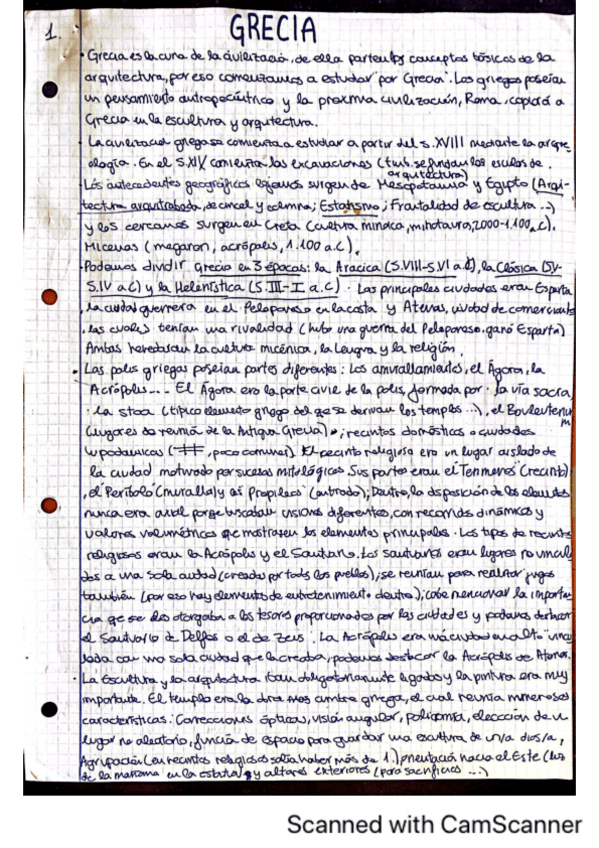 1.
GRECIA
· Grecia es la cuna de la civilización, de ella parten los conceptos básicos de la
arquitectura, por eso comenzamos a estudiar por Grecia. Los griegos poseían
un pensamiento antropocéntrico y la proxima civilización, Roma, copiará a
Grecia en la escultura y arquitectura.
· La civilización griega se comienza a estudiar a partir del s. XVIII mediante la arque_
ología. En el S.XIX comienzan las excavaciones (tmb. se fundan las escuelas de
arquitectura)
· Los antecedentes geográficos lejanos surgen de Mesopotamia y Egipto (Arqui-
tectura arquitrabada, de cincel y columna; Estatismo; Frontalidad de escultura...)
y los cercanos surgen en Creta (cultura minoica, minotauro, 2000-1.100 a.C),
Micenas (megaron, acrópolis, 1.100 a.C).
· Podemos dividir Grecia en 3 épocas: la Arcaica (S.VIII-S.VI a.C), la Clásica (SV-
S.IV a.C) y la Helenística (S.III-I a.C). Las principales ciudades eran Esparta,
la ciudad guerrera en el Peloponeso en la costa y Atenas, ciudad de comerciantes
, las cuales tenían una rivalidad (hubo una guerra del Peloponeso, ganó Esparta)
Ambas heredaban la cultura micénica, la lengua y la religión.
· Las polis griegas poseían partes diferentes: Los amurallamientos, el Ágora, la
Acrópolis... El Ágora era la parte civil de la polis, formada por: la vía sacra,
la stoa (típico elemento griego del que se derivan los templos...), el Bouleuterium
(lugares de reunión de la Antigua Grecia); recintos domésticos o ciudades
hipodámicas (poco comunes). El recinto religioso era un lugar aislado de
la ciudad motivado por sucesos mitológicos. Sus partes eran el Temmenos (recinto)
, el Períbolo (muralla) y los Propileos (entrada); Dentro, la disposición de los elementos
nunca era axial porque buscaban visiones diferentes, con recorridos dinámicos y
valores volumétricos que mostrasen los elementos principales. Los tipos de recintos
religiosos eran la Acrópolis y el Santuario. Los santuarios eran lugares no vincula
dos a una sola ciudad (creados por todos los pueblos), se reunían para realizar juegos
también (por eso hay elementos de entretenimiento dentro); cabe mencionar la importan
cia que se les otorgaba a los tesoros proporcionados por las ciudades y podemos destacar
el Santuario de Delfos o el de Zeus. La Acrópolis era una ciudad en alto vincu
lada con una sola ciudad que la creaba, podemos destacar la Acrópolis de Atenas.
· La Escultura y la arquitectura iban obligatoriamente ligadas y la pintura era muy
importante. El templo era la obra más cumbre griega, el cual reunía numerosas
características: Correcciones ópticas, visión angular, policromía, elección de un
lugar no aleatorio, función de espacio para guardar una escultura de un/a dios/a,
Agrupación (en recintos religiosos solía haber más de 1.) orientación hacia el Este (luz
de la mañana en la estatua) y altares exteriores (para sacrificios...)
Scanned with CamScanner